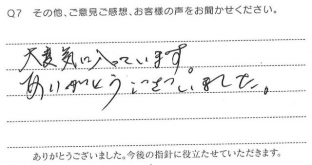 Q7 その他、ご意見ご感想、お客様の声をお聞かせください。
大変気に入っています。
ありがとうございました。
ありがとうございました。今後の指針に役立たせていただきます。